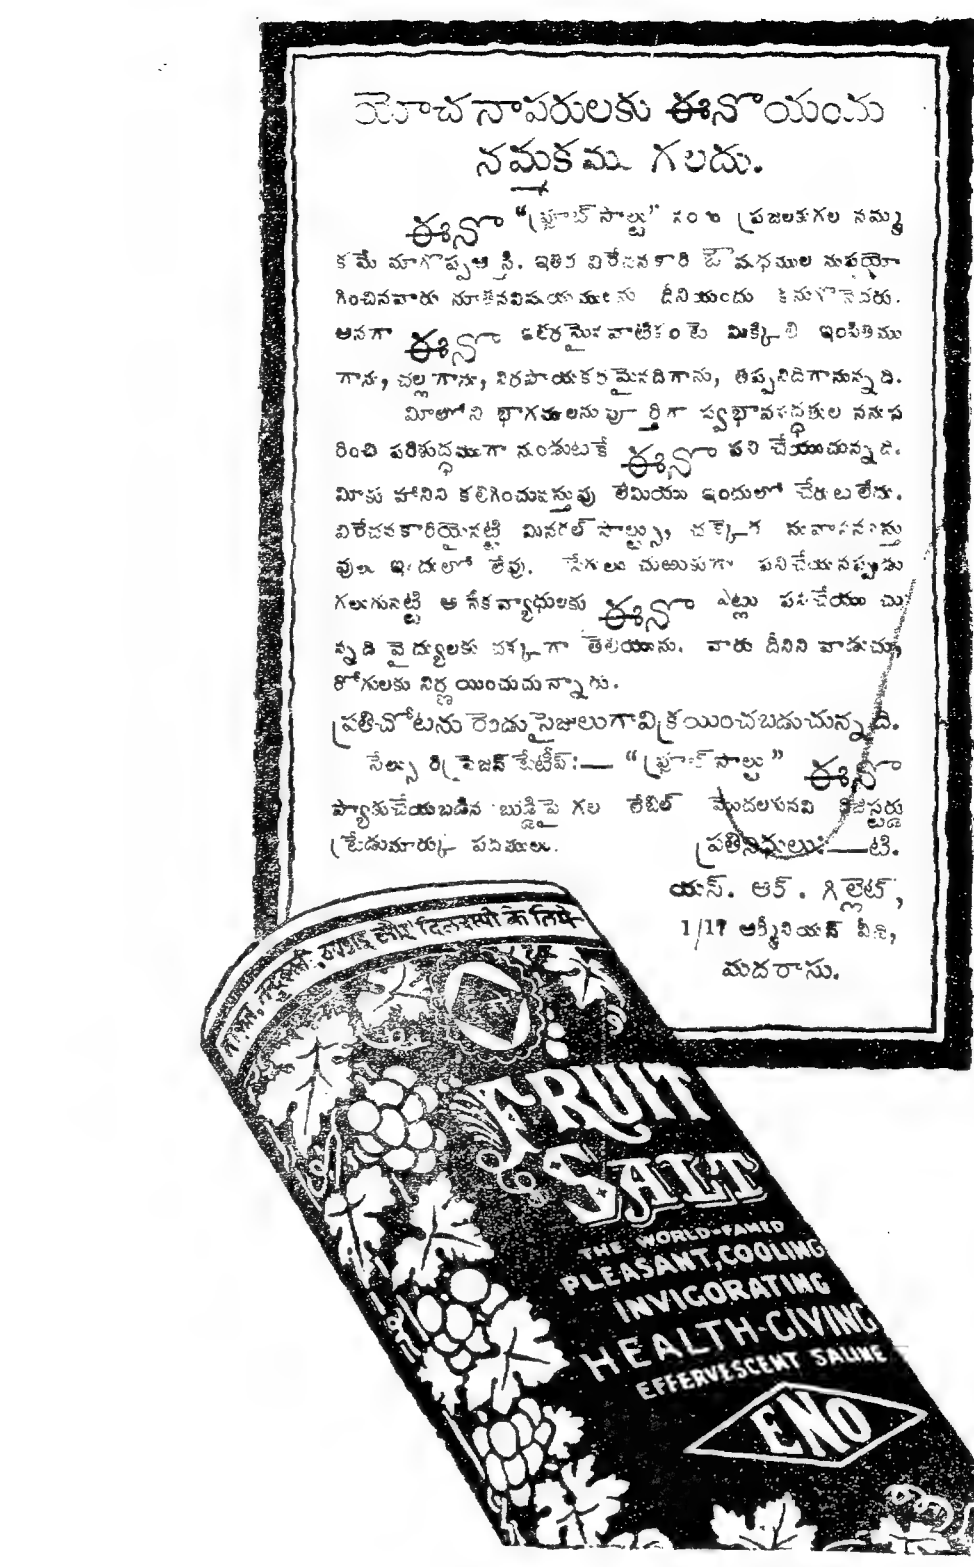 యోచనాపరులకు ఈనోయందు
నమ్మకము గలదు.
ఈనో "ఫ్రూట్ సాల్టు" నందు ప్రజలకుగల నమ్మ
కమే మాగొప్పఆస్తి. ఇతర విరేచనకారి ఔషధముల నుపయో
గించినవారు నూతనవిషయములను దీనియందు కనుగొనెదరు.
అనగా ఈనో ఇతరమైనవాటికంటె మిక్కిలి ఇంపితము
గాను, చల్లగాను, నిరపాయకరమైనదిగాను, తప్పనిదిగానున్నది.
మీలోని భాగములనుపూర్తిగా స్వభావసిద్ధతుల ననుస
రించి పరిశుద్ధముగా నుండుటకే ఈనో పని చేయుచున్నది.
మీకు హానిని కలిగించువస్తువు లేమియు ఇందులో చేరుటలేదు.
విరేచనకారియైనట్టి మినరల్ సాల్ట్సు, చక్కెర సువాసనవస్తు
వులు ఇందులో లేవు. పేగులు చురుకుగా పనిచేయనప్పుడు
గలుగునట్టి అనేకవ్యాధులకు ఈనో ఎట్లు పనిచేయుచు
న్నది వైద్యులకు చక్కగా తెలియును. వారు దీనిని వాడుచు,
రోగులకు నిర్ణయించుచున్నారు.
ప్రతిచోటను రెండుసైజులుగావిక్రయించబడుచున్నది.
సేల్సు రిప్రెజన్‌టేటీవ్:— "ఫ్రూట్ సాల్టు" ఈనో
ప్యాకుచేయబడిన బుడ్డిపై గల లేబిల్ మొదలగునవి రిజిస్టర్డు
ట్రేడుమార్కు పదములు.
ప్రతినిధులు:—టి.
యస్. ఆర్. గిల్లెట్,
1/17 ఆర్మీనియన్ వీధి,
మదరాసు.
के लिये
FRUIT
SALT
THE WORLD-FAMED
PLEASANT, COOLING
INVIGORATING
HEALTH-GIVING
EFFERVESCENT SALINE
ENO